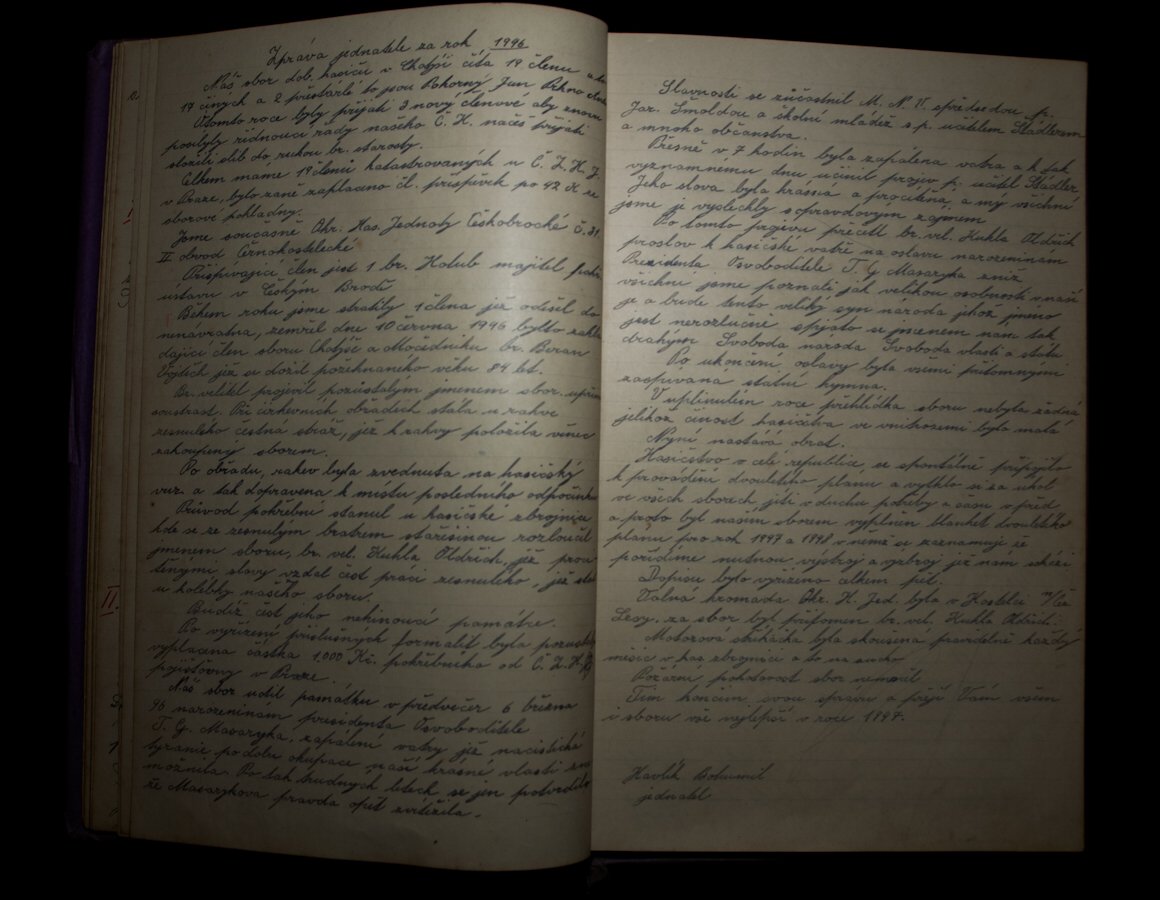 Zpráva jednatele za rok 1946
Náš sbor dob. hasičů v Chotýši čítá 19 členů a to
17 činých a 2 přestárlé to jsou Pokorný Jan Prkno
Otomto roce byly přijati 3 nový členové aby znovu
posílyly řídnoucí řady našeho Č. H. načež přijati
složili slib do rukou br. starosty.
Celkem máme 19 členů katastrovaných u Č. Z. H. J.
v Praze, bylo zaně zaplaceno čl. příspěvek po 42 K ze
sborové pokladny.
Jsme součásné Okr. Has. Jednoty Českobrocké č. 31.
II obvod Černokostelecké
Přispívající člen jest 1 br. Holub majitel pohř.
ústavu v Českým Brodě
Během roku jsme stratily 1 člena jež odešel do
nenávratna, zemřel dne 10 června 1946 byl to zakla
dající člen sboru Chotýše a Močedníku br. Beran
Vojtěch jež se dožil požehnaného věku 84 let.
Br. velitel projevil pozůstalým jmenem sboru upřím
soustrast. Při církevních obřadech stála u rakve
zesnulého čestná stráž, jež k rakvy položila věnec
zakoupený sborem.
Po obřadu, rakev byla zvednuta na hasičský
vuz. a tak dopravena k místu posledního odpočinku
Průvod pohřební stanul u hasičské zbrojnice
kde se ze zesnulým bratrem stařešinou rozloučil
jmenem sboru, br. vel. Kuhla Oldřich, jež proci
těnými slovy vzdal čest práci zesnulého, jež stál
u kolébky našeho sboru.
Budiž čest jeho nehinoucí památce.
Po vyřízení příslušných formalit byla pozustalým
vyplacena částka 1.000 Kč. pohřebného od Č. Z. H. P.
pojišťovny v Praze.
Náš sbor uctil památku v předvečer 6 března
96 narozeninám presidenta Osvoboditele
T. G. Masaryka, zapálení vatry jež nacistická
tyranie po dobu okupace naší krásné vlasti zne
možnila. Po tak trudných letech se jen potvrdilo
že Masarykova pravda opět zvítězila.
Slavnosti se zůčastnil M. N. V. spředsedou p.
Jar. Šmoldou a školní mládež s p. učitelem Städlerem
a mnoho občanstva.
Přesně v 7 hodin byla zapálena vatra a k tak
významnému dnu učinil projev p. učitel Städler
Jeho slova byla krásná a procítěna, a my všichni
jsme je vyslechly sopravdovým zájmem
Po tomto projevu přečetl br. vel. Kuhla Oldřich
proslov k hasičské vatře na oslavu narozeninám
Prezidenta Osvoboditele T. G. Masaryka zniž
všichni jsme poznali jak velikou osobností v naší
je a bude tento veliký syn národa jehož jméno
jest nerozlučně spjato se jmenem nám tak
drahým Svoboda národa Svoboda vlasti a státu
Po ukončení oslavy byla všemi přítomnými
zaspívaná státní hymna.
V uplinulém roce přehlídka sboru nebyla žádná
jelikož činost hasičstva ve vnitrozemí byla malá
Nyní nastává obrat.
Hasičstvo v celé republice, se spontálně připojilo
k provádění dvouletého planu a vytklo si za ukol
ve všech sborech jíti v duchu potřeby a času v před
a proto byl naším sborem vyplněn blanket dvouletého
plánu pro rok 1947 a 1948 v nemž se zaznamuji že
pořídíme nutnou výstroj a výzbroj jež nám schází.
Dopisu bylo vyřízeno celkem pět.
Valná hromada Okr. H. Jed. byla v Kostelci n/Čer
Lesy, za sbor byl přítomen br. vel. Kuhla Oldřich.
Motorová stříkačka byla skoušená pravidelně každý
měsíc v has zbrojnici a to na sucho
Požární pohotovost sbor neměl
Tím končím svou správu a přeji Vám všem
i sboru vše nejlepší v roce 1947.
Havlík Bohumil
jednatel